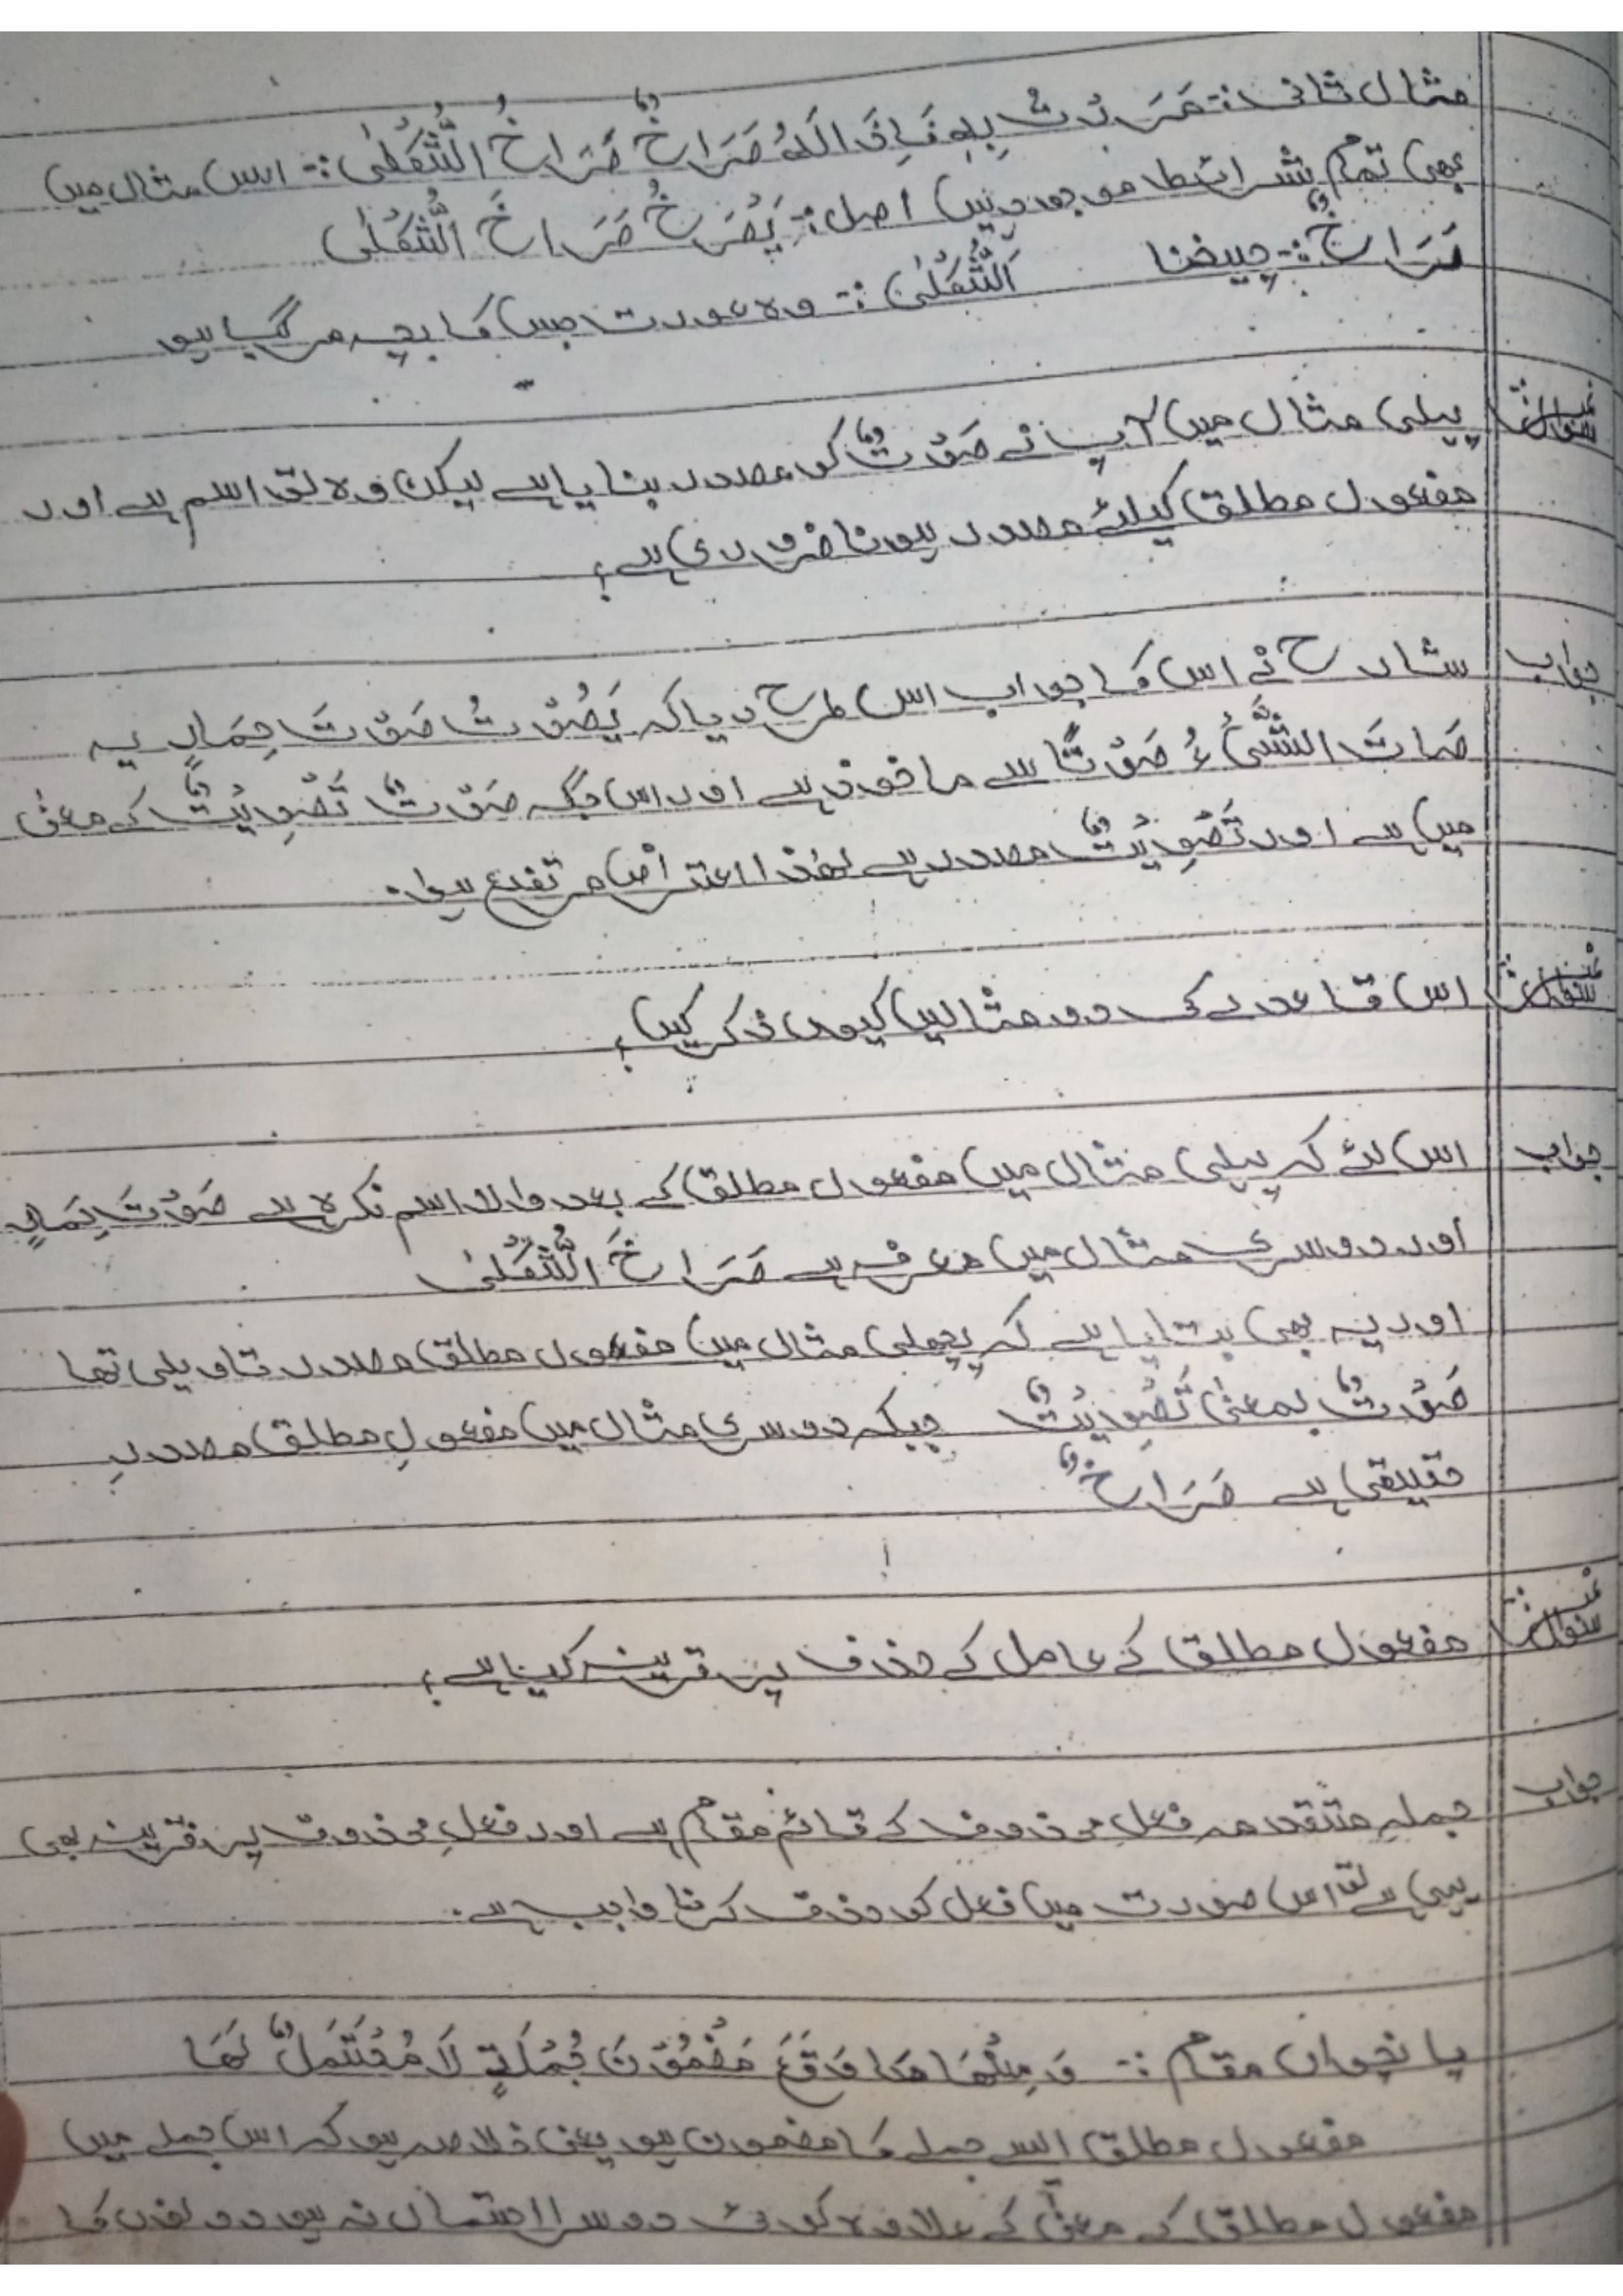 مثال ثانی :- مَرَرْتُ بِهٖ فَاِذَا لَهٗ صُرَاخٌ صُرَاخَ الثَّكْلٰى :- اس مثال میں
بھی تمام شرائط موجود ہیں اصل :- يَصْرَخُ صُرَاخَ الثَّكْلٰى
صُرَاخٌ :- چیخنا اَلثَّكْلٰى :- وہ عورت جس کا بچہ مر گیا ہو
سوال پہلی مثال میں آپ نے صَوْتٌ کو مصدر بنایا ہے لیکن وہ تو اسم ہے اور
مفعول مطلق کیلئے مصدر ہونا ضروری ہے؟
جواب شارح نے اس کا جواب اس طرح دیا کہ يَصُوْتُ صَوْتَ حِمَارٍ یہ
صَاتَ الشَّيْءُ صَوْتًا سے ماخوذ ہے اور اس جگہ صَوْتٌ تَصْوِيْتٌ کے معنی
میں ہے اور تَصْوِيْتٌ مصدر ہے لھذا اعتراض مرتفع ہوا.
سوال اس قاعدے کی دو مثالیں کیوں ذکر کیں؟
جواب اس لئے کہ پہلی مثال میں مفعول مطلق کے بعد والا اسم نکرہ ہے صَوْتَ حِمَارٍ
اور دوسری مثال میں معرفہ ہے صُرَاخَ الثَّكْلٰى
اور یہ بھی بتایا ہے کہ پچھلی مثال میں مفعول مطلق مصدر تاویلی تھا
صَوْتٌ بمعنیٰ تَصْوِيْتٌ جبکہ دوسری مثال میں مفعولِ مطلق مصدرِ
حقیقی ہے صُرَاخٌ
سوال مفعول مطلق کے عامل کے حذف پر قرینہ کیا ہے؟
جواب جملہِ متقدمہ فعلِ محذوف کے قائم مقام ہے اور فعلِ محذوف پر قرینہ بھی
یہی ہے تو اس صورت میں فعل کو حذف کرنا واجب ہے.
پانچواں مقام :- وَ مِنْهَا مَا وَقَعَ مَضْمُوْنَ جُمْلَةٍ لَا مُحْتَمَلَ لَهَا
مفعول مطلق ایسے جملے کا مضمون ہو یعنی خلاصہ ہو کہ اس جملے میں
مفعول مطلق کے معنیٰ کے علاوہ کوئی دوسرا احتمال نہ ہو دونوں کا